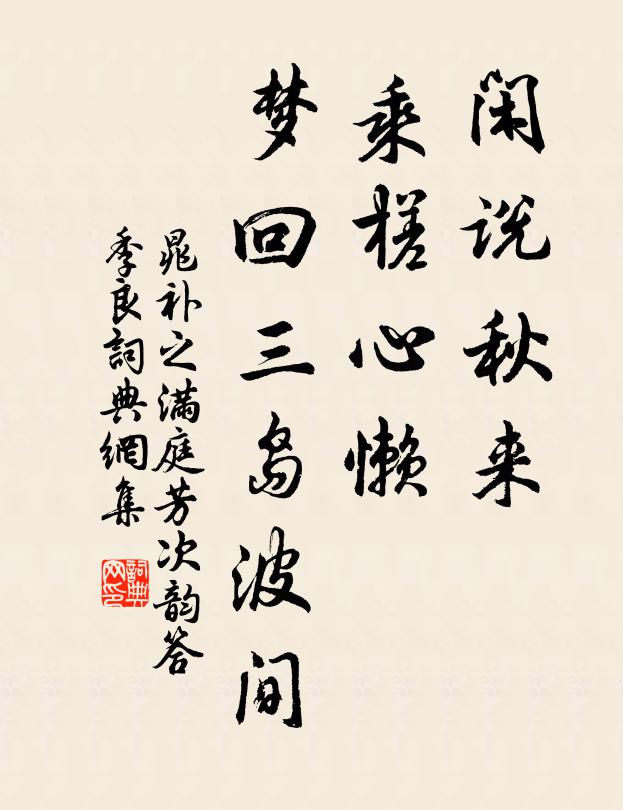 闲说秋来
乘槎心懒
梦回三岛波间
晁补之满庭芳次韵答
季良詞典網集
詞典
网印